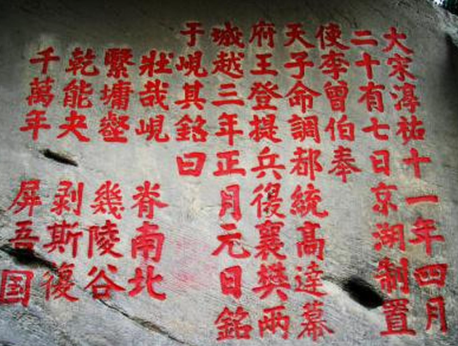 大宋淳祐十一年四月
二十有七日京湖制置
使李曾伯奉
天子命調都統高達幕
府王登提兵復襄樊两
城越三年正月元日銘
于峴其銘曰
壯哉峴 脊南北
繄墉壑 幾陵谷
乾能夬 剥斯復
千萬年 屏吾国